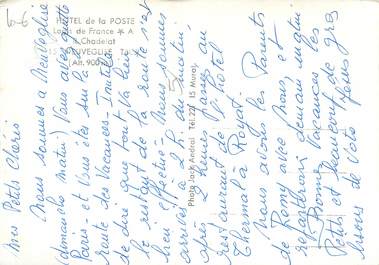 6-6
HÔTEL de la POSTE
Logis de France * A
Chadelat
NEUVEGLISE
(Alt. 900 m)
Photo Jack Andral Tél. 227 15 Mauriac
Mes Petits Chéris
Nous sommes à Neuvéglise
(dimanche matin) Vous avez quitté
Paris - et vous êtes sur la
route des Vacances - Inutile
de dire que tout va bien
le restant de la route s'est
bien effectué - Nous sommes
arrivés à 2 h. du matin
après 2 heures passées au
restaurant de l'hôtel
Thermal à Royat.
Nous avons les Parents
de Remy avec nous, et
repartirons demain matin
Bonnes vacances les
Petits et beaucoup de gros
bisous de vos